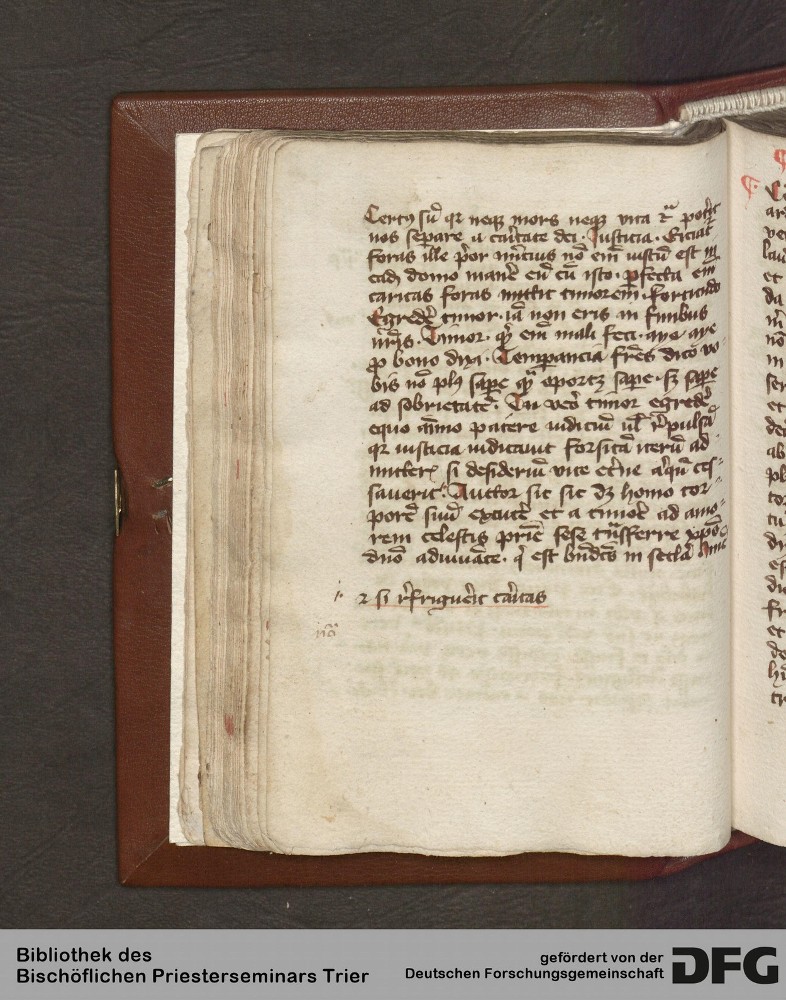 Certꝯ sū qr neqꝫ mors neqꝫ vita ⁊c pot̕it
nos separe a cаritate dei · Iusticia · Eiciat᷑
foras ille p̕or nūcius nō em̄ iustū est in
eadꝫ domo manē eū cū isto · ꝑfecta em̄
caritas foras mittit timorem · fortitudo
Egredē timor · iā non eris in finibus
nr̄is · Timor · qͥd em̄ mali feci · aye aye
ꝓ bono dixi · Temꝑancia fr̄es dico vo
bis nō plꝯ saꝑe qͣ oportꝫ saꝑe · sꝫ saꝑe
ad sobrietatē · Tu vero timor egredē
equo aīmo patere iudiciū ul̄ r̕pulsā
qr iusticia iudicauit forsitā iterū ad
mitter̕ si desideriū vite et̕ne a̕qn̄ ces
sauerit · Auctor sic sic dꝫ homo tor
porē suū excutē et a timoē ad amo
rem celestis pr̄ie sese tn̄sferre xpō
dn̄o adiuuāte · qͥ est bn̄dc̄s in secl̄a Amē
⁊ si r̕friguerit caritas
nō
Bibliothek des
Bischöflichen Priesterseminars Trier
gefördert von der
Deutschen Forschungsgemeinschaft
DFG